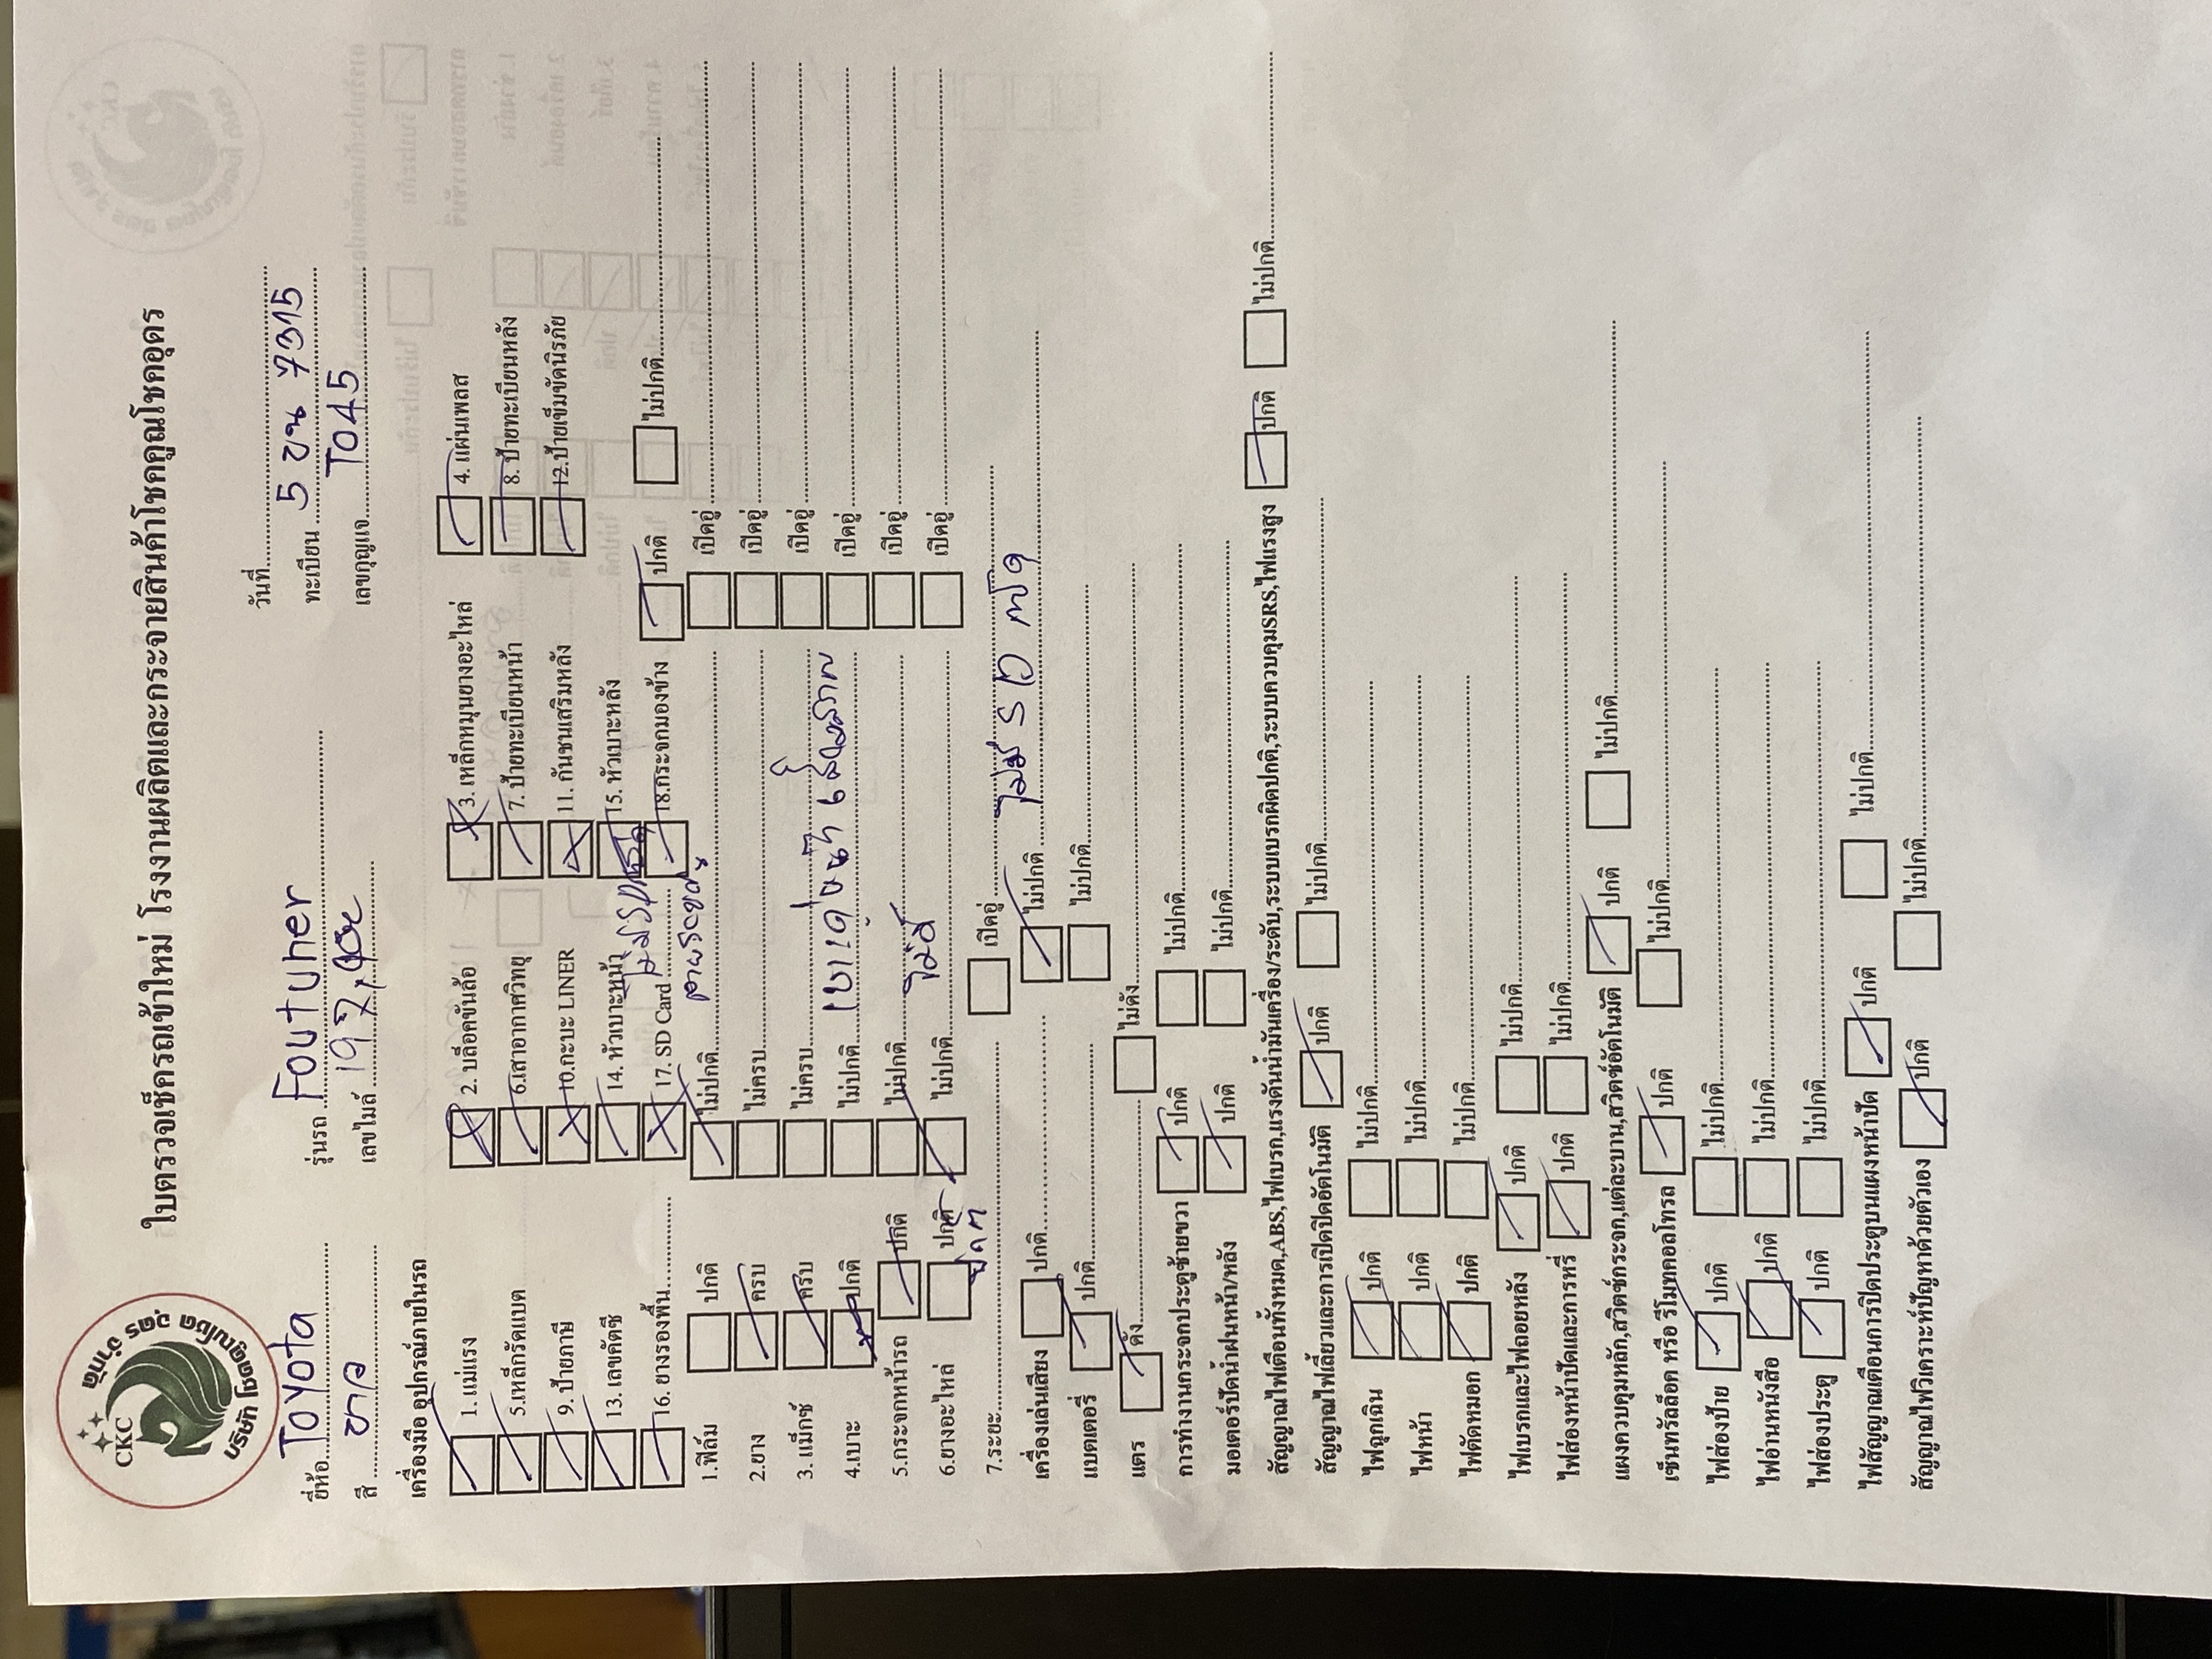 CKC
บริษัท โชคคูณโชค อุดร จำกัด
ใบตรวจเช็ครถเข้าใหม่ โรงงานผลิตและกระจายสินค้าโชคคูณโชคอุดร
วันที่
ยี่ห้อ Toyota รุ่นรถ Foutuner ทะเบียน 5 ขน 7315
สี ขาว เลขไมล์ เลขกุญแจ T045
เครื่องมือ อุปกรณ์ภายในรถ
1. แม่แรง 2. บล็อคขันล้อ 3. เหล็กหมุนยางอะไหล่ 4. แผ่นเพลส
5.เหล็กกรัดแบต 6.เสาอากาศวิทยุ 7. ป้ายทะเบียนหน้า 8. ป้ายทะเบียนหลัง
9. ป้ายภาษี 10.กะบะ LINER 11. กันชนเสริมหลัง 12.ป้ายเข็มขัดนิรภัย
13. เลขคัดซี 14. หัวเบาะหน้า 15. หัวเบาะหลัง
16. ยางรองพื้น 17. SD Card 18.กระจกมองข้าง ปกติ ไม่ปกติ
1.ฟิล์ม ปกติ ไม่ปกติ เปิดอู่
2.ยาง ครบ ไม่ครบ เปิดอู่
3. แม็กซ์ ครบ ไม่ครบ เปิดอู่
4.เบาะ ปกติ ไม่ปกติ เปิดอู่
5.กระจกหน้ารถ ปกติ ไม่ปกติ ไม่มี เปิดอู่
6.ยางอะไหล่ ปกติ ไม่ปกติ เปิดอู่
7.ระยะ เปิดอู่
เครื่องเล่นเสียง ปกติ ไม่ปกติ ไม่มี
แบตเตอรี่ ปกติ ไม่ปกติ
แตร ดัง ไม่ดัง
การทำงานกระจกประตูซ้ายขวา ปกติ ไม่ปกติ
มอเตอร์ปัดน้ำฝนหน้า/หลัง ปกติ ไม่ปกติ
สัญญาณไฟเตือนทั้งหมด,ABS,ไฟเบรก,แรงดันน้ำมันเครื่อง/ระดับ,ระบบเบรกผิดปกติ,ระบบควบคุมSRS,ไฟแรงสูง ปกติ ไม่ปกติ
สัญญาณไฟเลี้ยวและการเปิดปิดอัตโนมัติ ปกติ ไม่ปกติ
ไฟฉุกเฉิน ปกติ ไม่ปกติ
ไฟหน้า ปกติ ไม่ปกติ
ไฟตัดหมอก ปกติ ไม่ปกติ
ไฟเบรกและไฟถอยหลัง ปกติ ไม่ปกติ
ไฟส่องหน้าปัดและการหรี่ ปกติ ไม่ปกติ
แผงควบคุมหลัก,สวิตช์กระจก,แต่ละบาน,สวิตช์อัตโนมัติ ปกติ ไม่ปกติ
เซ็นทรัลล็อค หรือ รีโมทคอลโทรล ปกติ ไม่ปกติ
ไฟส่องป้าย ปกติ ไม่ปกติ
ไฟอ่านหนังสือ ปกติ ไม่ปกติ
ไฟส่องประตู ปกติ ไม่ปกติ
ไฟสัญญาณเตือนการปิดประตูบนแผงหน้าปัด ปกติ ไม่ปกติ
สัญญาณไฟวิเคราะห์ปัญหาด้วยตัวเอง ปกติ ไม่ปกติ